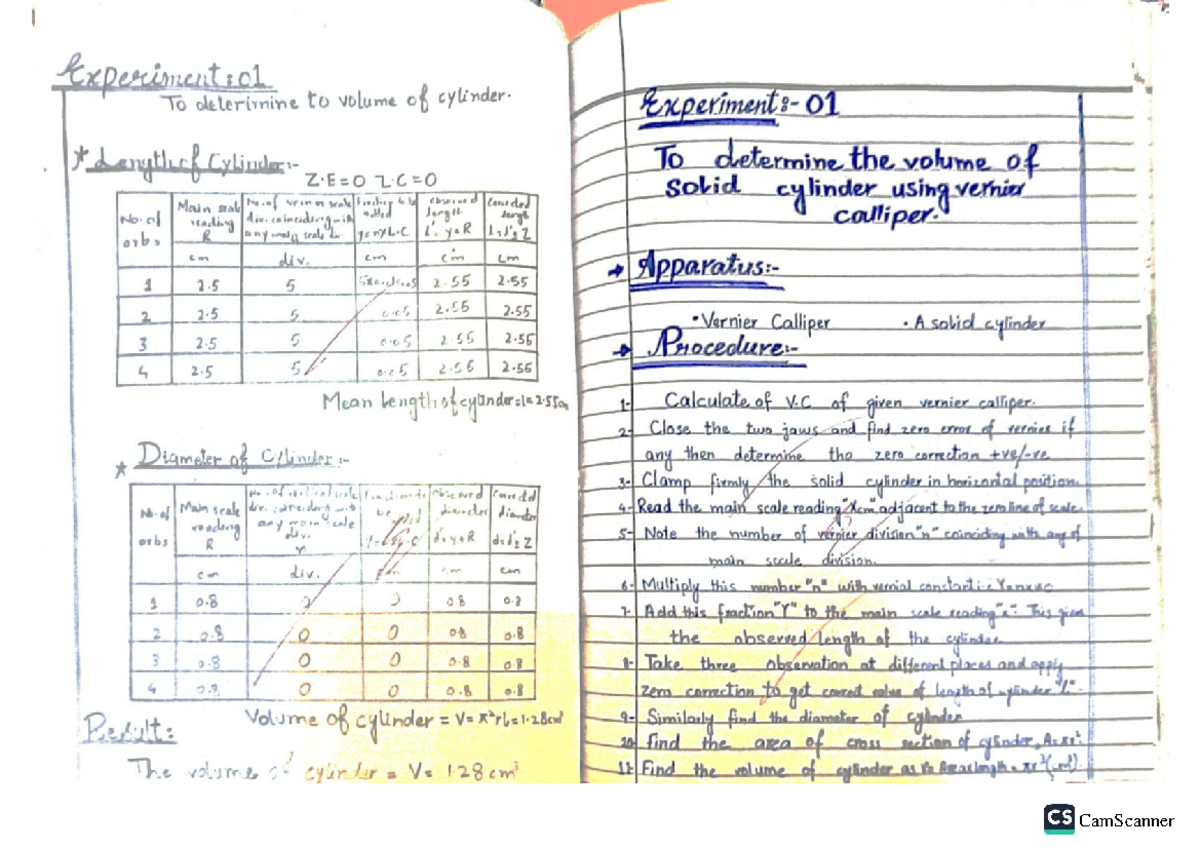 Experiment:01
To deterimine to volume of cylinder.
* Length of Cylinder:-
Z.E=0 Z.C=0
No. of orbs | Main scale reading R | No. of vernier scale div. coinciding with any main scale div. | added y=n×L.C | observed length l'=y+R | Corrected length
cm | div. | cm | cm | cm
1 | 2.5 | 5 | 2.55 | 2.55
2 | 2.5 | 5 | 0.05 | 2.55 | 2.55
3 | 2.5 | 5 | 0.05 | 2.55 | 2.55
4 | 2.5 | 5 | 0.05 | 2.55 | 2.55
Mean Length of cylinder=l=2.55cm
* Diameter of Cylinder:-
No. of orbs | Main scale reading R | div. coinciding with any main scale div. | observed diameter d'=y+R | Corrected diameter
cm | div. | cm | cm | cm
1 | 0.8 | 0 | 0 | 0.8 | 0.8
2 | 0.8 | 0 | 0 | 0.8 | 0.8
3 | 0.8 | 0 | 0 | 0.8 | 0.8
4 | 0.8 | 0 | 0 | 0.8 | 0.8
Volume of cylinder = V= 1.28cm³
Result:
The volume of cylinder = V= 1.28cm³
Experiment:- 01
To determine the volume of
solid cylinder using vernier
calliper.
→ Apparatus:-
• Vernier Calliper • A solid cylinder
→ Procedure:-
1- Calculate of V.C of given vernier calliper.
2- Close the two jaws and find zero error of vernier if
any then determine the zero correction +ve/-ve
3- Clamp firmly the solid cylinder in horizontal position.
4- Read the main scale reading "Xcm" adjacent to the zero line of scale.
5- Note the number of vernier division "n" coinciding with any of
main scale division.
6- Multiply this number "n" with vernial constant
7- Add this fraction "Y" to the main scale reading "x". This gives
the observed length of the cylinder.
8- Take three observation at different places and apply
zero correction to get correct value of length of cylinder "L".
9- Similarly find the diameter of cylinder
10- find the area of cross section of cylinder,
11- Find the volume of cylinder as
CS CamScanner